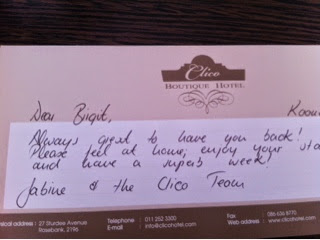 Clico
BOUTIQUE HOTEL
Dear Birgit,
Room
Always great to have you back!
Please feel at home, enjoy your sta
and have a superb week!
Sabine & the Clico Team
ysical address : 27 Sturdee Avenue
Rosebank, 2196
Telephone : 011 252 3300
E-mail : info@clicohotel.com
Fax : 086 636 8770
Web address : www.clicohotel.com